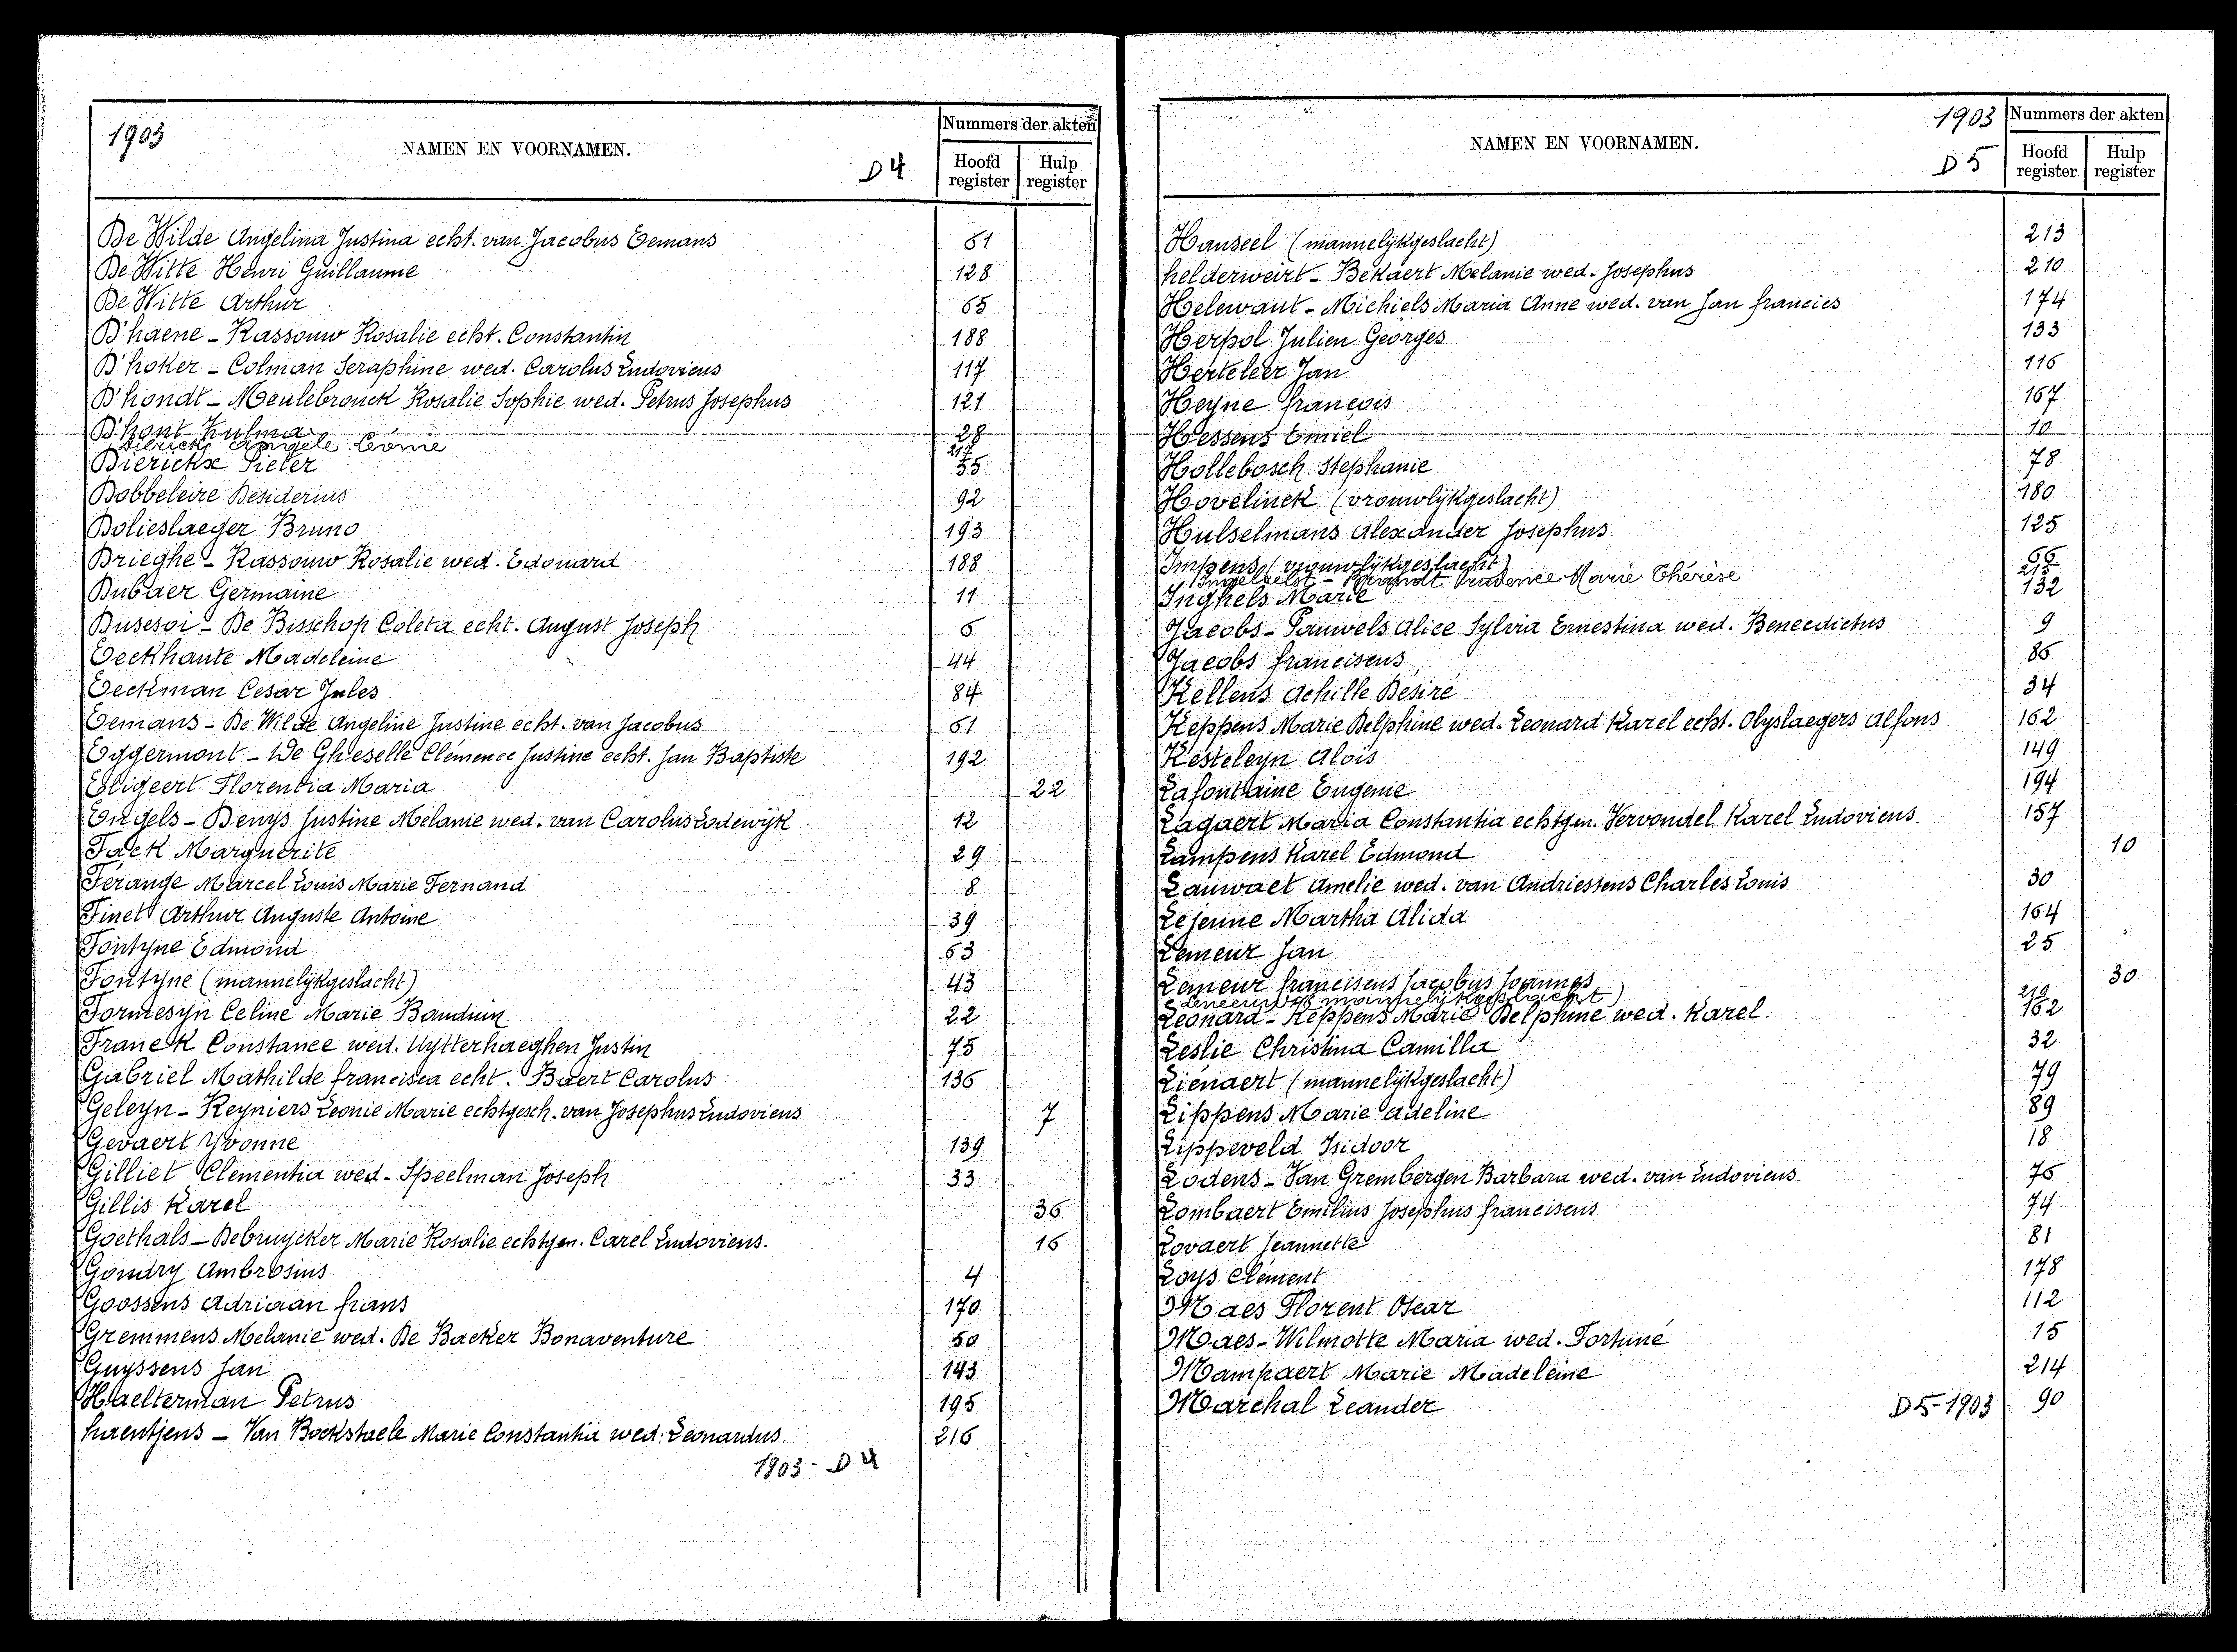 1903
NAMEN EN VOORNAMEN.
D 4
Nummers der akten
Hoofd register
Hulp register
De Wilde Angelina Justina echt. van Jacobus Eemans 61
De Witte Henri Guillaume 128
De Witte Arthur 65
D'haene - Kassouw Rosalie echt. Constantin 188
D'hoker - Colman Seraphine wed. Carolus Ludovicus 117
D'hondt - Meulebrouck Rosalie Sophie wed. Petrus Josephus 121
D'hont Zulma 28
Dierick Angèle Léonie 217
Dierickx Pieter 55
Dobbeleire Desiderius 92
Dolieslaeger Bruno 193
Drieghe - Kassouw Rosalie wed. Edouard 188
Dubaer Germaine 11
Dusesoi - De Bisschop Coleta echt. August Joseph 6
Eeckhaute Madeleine 44
Eeckman Cesar Jules 84
Eemans - De Wilde Angeline Justine echt. van Jacobus 61
Eggermont - De Gheselle Clémence Justine echt. Jan Baptiste 192
Eligeert Florentia Maria 22
Engels - Denys Justine Melanie wed. van Carolus Lodewijk 12
Fack Marguerite 29
Férange Marcel Louis Marie Fernand 8
Finet Arthur Auguste Antoine 39
Fontyne Edmond 63
Fontyne (mannelijkgeslacht) 43
Formesyn Celine Marie Bauduin 22
Franck Constance wed. Uytterhaeghen Justin 75
Gabriel Mathilde francisca echt. Baert Carolus 136
Geleyn - Reyniers Leonie Marie echtgesch. van Josephus Ludovicus 7
Gevaert Yvonne 139
Gilliet Clementia wed. Speelman Joseph 33
Gillis Karel 36
Goethals - Debruycker Marie Rosalie echtgen. Carel Ludovicus. 16
Gondry Ambrosius 4
Goossens Adriaan frans 170
Gremmens Melanie wed. De Backer Bonaventure 50
Guyssens Jan 143
Haelterman Petrus 195
haentjens - Van Bockstaele Marie Constantia wed. Leonardus. 216
1903 - D 4
NAMEN EN VOORNAMEN.
1903
D 5
Nummers der akten
Hoofd register
Hulp register
Hanseel (mannelijkgeslacht) 213
helderweirt - Bekaert Melanie wed. Josephus 210
Helewaut - Michiels Maria Anne wed. van Jan francies 174
Herpol Julien Georges 133
Herteleer Jan 116
Heyne françois 167
Hessens Emiel 10
Hollebosch Stephanie 78
Hovelinck (vrouwlijkgeslacht) 180
Hulselmans Alexander Josephus 125
Impens (vrouwlijkgeslacht) 66
Ingelaelst - Brandt Prudence Marie Thérèse 215
Inghels Marie 132
Jacobs - Pauwels Alice Sylvia Ernestina wed. Benecdictus 9
Jacobs franciscus 86
Kellens Achille Désiré 34
Keppens Marie Delphine wed. Leonard Karel echt. Olyslaegers Alfons 162
Kesteleyn Aloïs 149
Lafontaine Eugenie 194
Lagaert Maria Constantia echtgen. Vervondel Karel Ludovicus 157
Lampens Karel Edmond 10
Lauwaet Amelie wed. van Andriessens Charles Louis 30
Lejeune Martha Alida 164
Lemeur Jan 25
Lemeur franciscus Jacobus Joannes 30
Leneeuw (mannelijkgeslacht) 219
Leonard - Keppens Marie Delphine wed. Karel. 162
Leslie Christina Camilla 32
Liénaert (mannelijkgeslacht) 79
Lippens Marie Adeline 89
Lippeveld Isidoor 18
Lodens - Van Grembergen Barbara wed. van Ludovicus 76
Lombaert Emilius Josephus franciscus 74
Lovaert Jeannette 81
Loys Clément 178
Maes Florent Oscar 112
Maes - Wilmotte Maria wed. Fortuné 15
Mampaert Marie Madeleine 214
Marchal Leander 90
D 5 - 1903